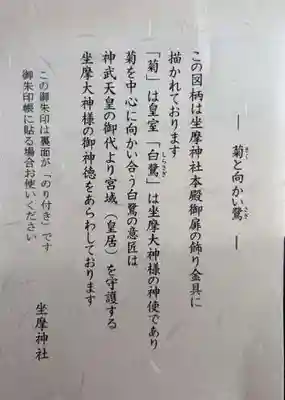 ― 菊と向かい鷺 ―
この図柄は坐摩神社本殿御扉の飾り金具に
描かれております
「菊」は皇室「白鷺」は坐摩大神様の神使であり
菊を中心に向かい合う白鷺の意匠は
神武天皇の御代より宮城（皇居）を守護する
坐摩大神様の御神徳をあらわしております
この御朱印は裏面が「のり付き」です
御朱印帳に貼る場合お使いください
坐摩神社